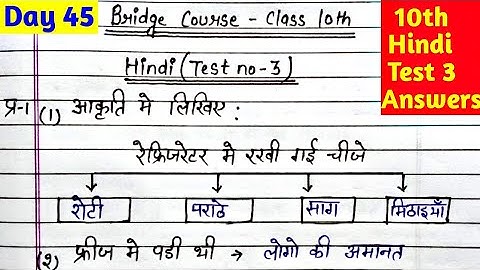 Day 45
Bridge Course - Class 10th
10th
Hindi
Test 3
Answers
Hindi (Test no-3)
प्र-1 (1) आकृति मे लिखिए :
रेफ्रिजरेटर मे रखी गई चीजे
रोटी पराठे साग मिठाइयाँ
(२) फ्रीज मे पडी थी → लोगो की अमानत